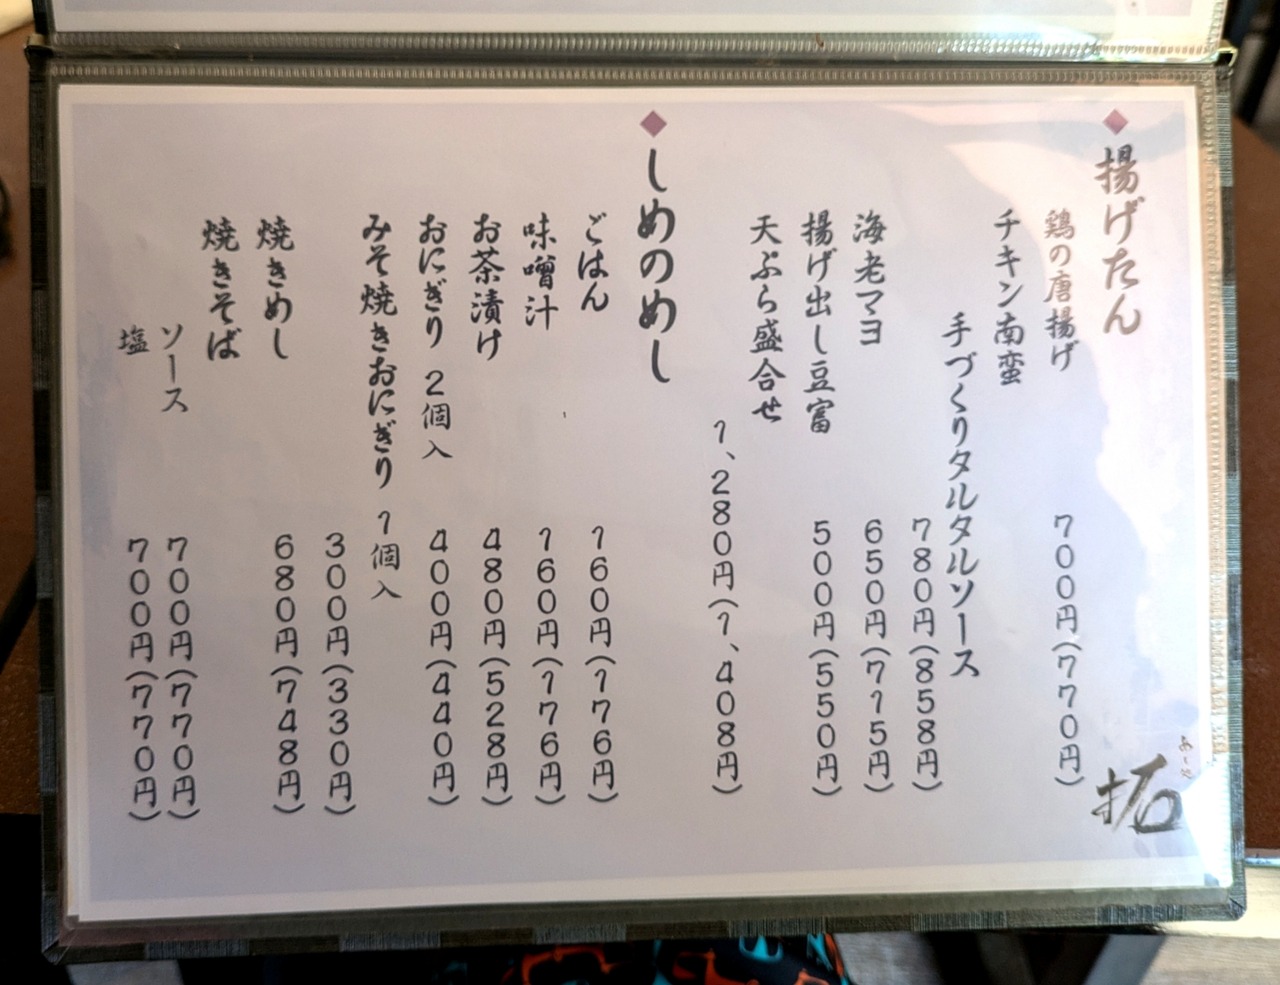 ◆揚げたん
鶏の唐揚げ 700円(770円)
チキン南蛮
手づくりタルタルソース
780円(858円)
海老マヨ 650円(715円)
揚げ出し豆富 500円(550円)
天ぷら盛合せ
1、280円(1、408円)
◆しめのめし
ごはん 160円(176円)
味噌汁 160円(176円)
お茶漬け 480円(528円)
おにぎり 2個入 400円(440円)
みそ焼きおにぎり 1個入
300円(330円)
焼きめし 680円(748円)
焼きそば
ソース 700円(770円)
塩 700円(770円)
拓